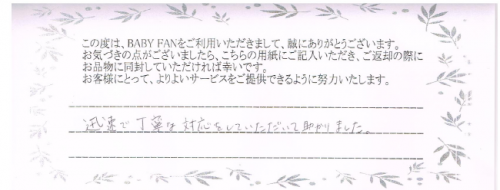 この度は、BABY FANをご利用いただきまして、誠にありがとうございます。
お気づきの点がございましたら、こちらの用紙にご記入いただき、ご返却の際に
お品物に同封していただければ幸いです。
お客様にとって、よりよいサービスをご提供できるように努力いたします。
迅速で丁寧な対応をしていただいて助かりました。